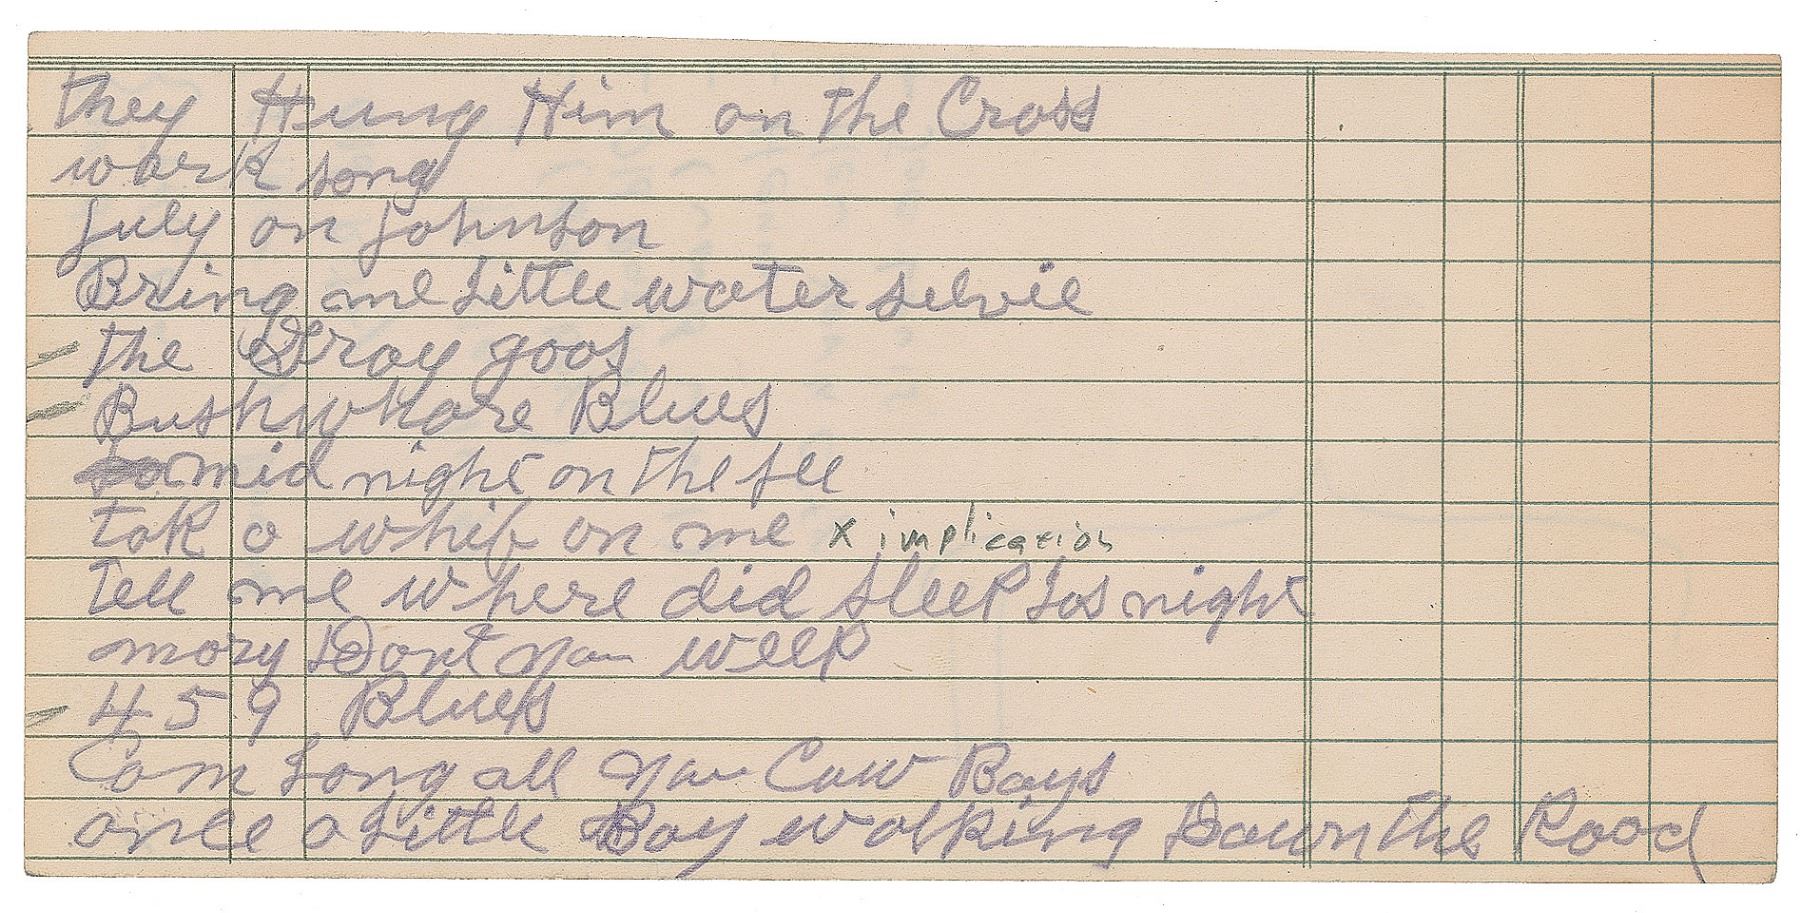 they Hung Him on the Cross
work song
July on Johnson
Bring me Little water selvie
the Gray goos
Bushwhore Blues
mid night on the see
tak a whif on me x implication
tell me where did sleep Las night
mory Dont you weep
4 5 9 Blues
Com Long all you Cow Boys
once a Little Boy walking Down the Road